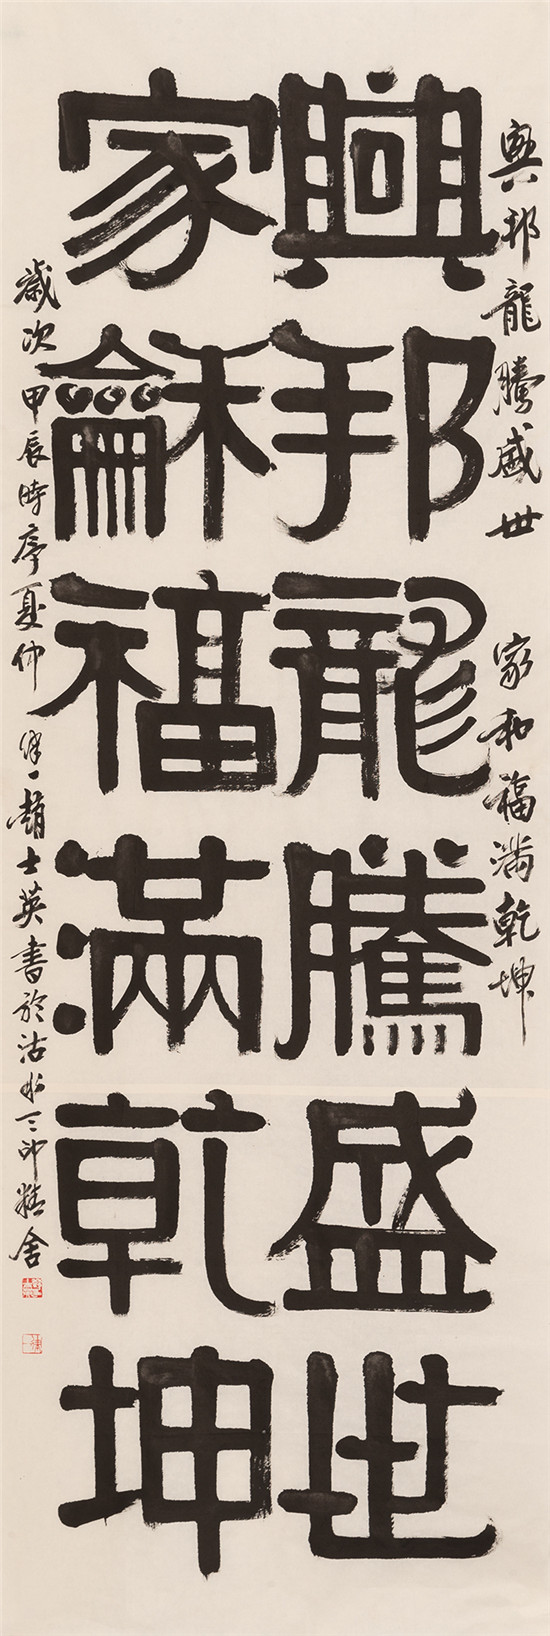 興邦龍騰盛世 家和福滿乾坤
興邦龍騰盛世
家龢福滿乾坤
歲次甲辰時序夏仲津一趙士英書於沽水三印精舍